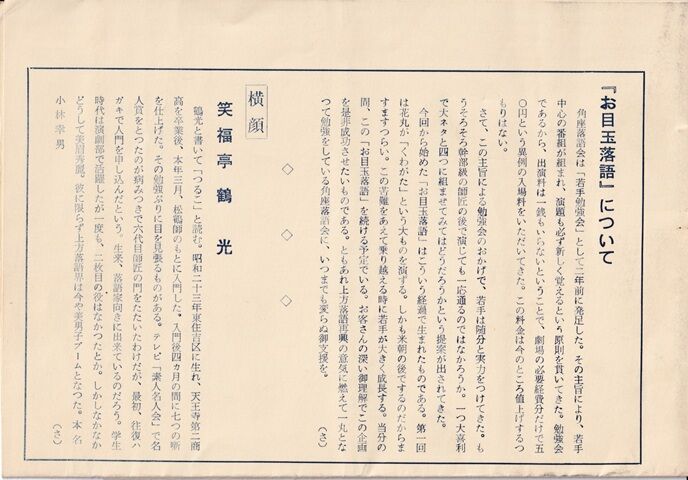 『お目玉落語』について
角座落語会は「若手勉強会」として二年前に発足した。その主旨により、若手
中心の番組が組まれ、演題も必ず新しく覚えるという原則を貫いてきた。勉強会
であるから、出演料は一銭もいらないということで、劇場の必要経費分だけで五
〇円という異例の入場料をいただいてきた。この料金は今のところ値上げするつ
もりはない。
さて、この主旨による勉強会のおかげで、若手は随分と実力をつけてきた。も
うそろそろ幹部級の師匠の後で演じても一応通るのではなかろうか。一つ大喜利
で大ネタと四つに組ませてみてはどうだろうかという提案が出されてきた。
今回から始めた「お目玉落語」はこういう経過で生まれたものである。第一回
は花丸が「くわがた」という大ものを演ずる。しかも米朝の後でするのだからま
すますつらい。この苦難をあえて乗り越える時に若手が大きく成長する。当分の
間、この「お目玉落語」を続ける予定でいる。お客さんの深い御理解でこの企画
を是非成功させたいものである。ともあれ上方落語再興の意気に燃えて一丸とな
つて勉強をしている角座落語会に、いつまでも変らぬ御支援を。
（さ）
◇ ◇ ◇
横顔
笑福亭鶴光
鶴光と書いて「つるこ」と読む。昭和二十三年東住吉区に生れ、天王寺第二商
高を卒業後、本年三月、松鶴師のもとに入門した。入門後四ヵ月の間に七つの噺
を仕上げた。その勉強ぶりに目を見張るものがある。テレビ「素人名人会」で名
人賞をとつたのが病みつきで六代目師匠の門をたたいたわけだが、最初、往復ハ
ガキで入門を申し込んだという。生来、落語家向きに出来ているのだろう。学生
時代は演劇部で活躍したが一度も、二枚目の役はなかつたとか。しかしなかなか
どうして美眉秀麗。彼に限らず上方落語界は今や美男子ブームとなつた。本名
小林幸男
（さ）